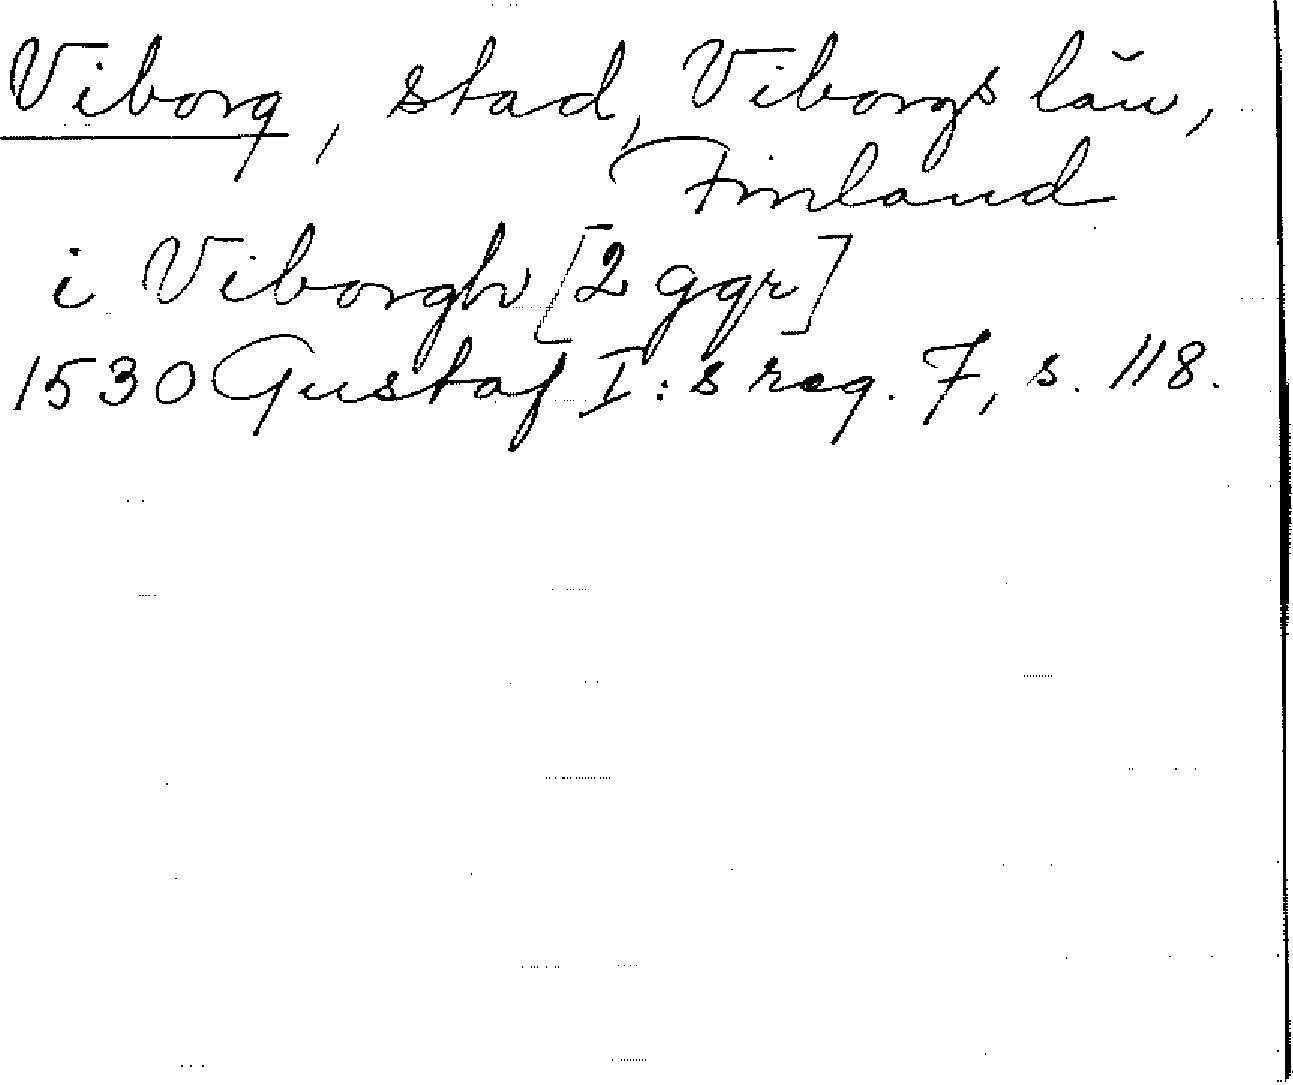 Viborg, stad, Viborgs län,
Finland
i Viborgh [2 ggr]
1530 Gustaf I:s reg. 7, s. 118.